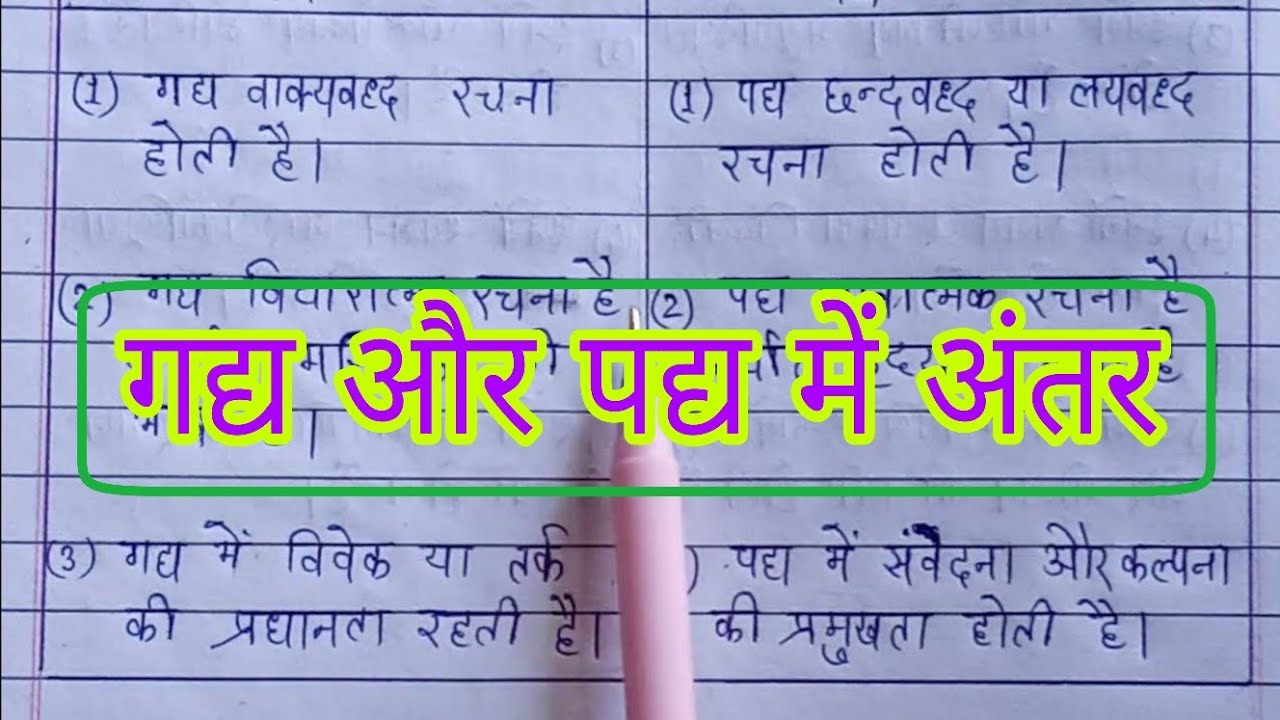 (1) गद्य वाक्यवध्द रचना
होती है।
(1) पद्य छन्दवध्द या लयवध्द
रचना होती है।
(2) गद्य रचना है
(2) पद्य रचना है
गद्य और पद्य में अंतर
(3) गद्य में विवेक या तर्क
की प्रधानता रहती है।
) पद्य में संवेदना और कल्पना
की प्रमुखता होती है।